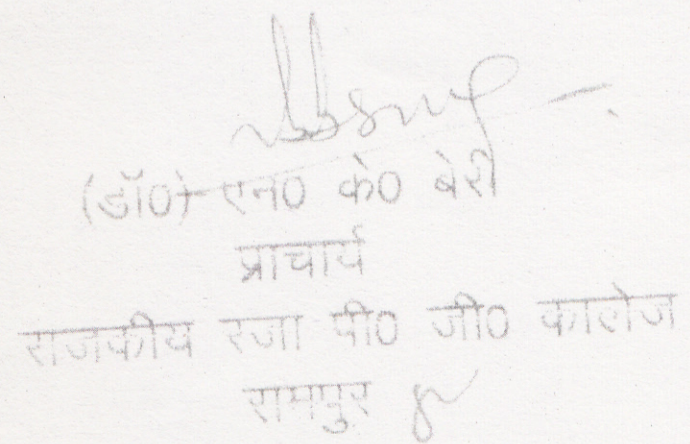 (डॉ0) एन0 के0 बेरी
प्राचार्य
राजकीय रजा पी0 जी0 कालेज
रामपुर